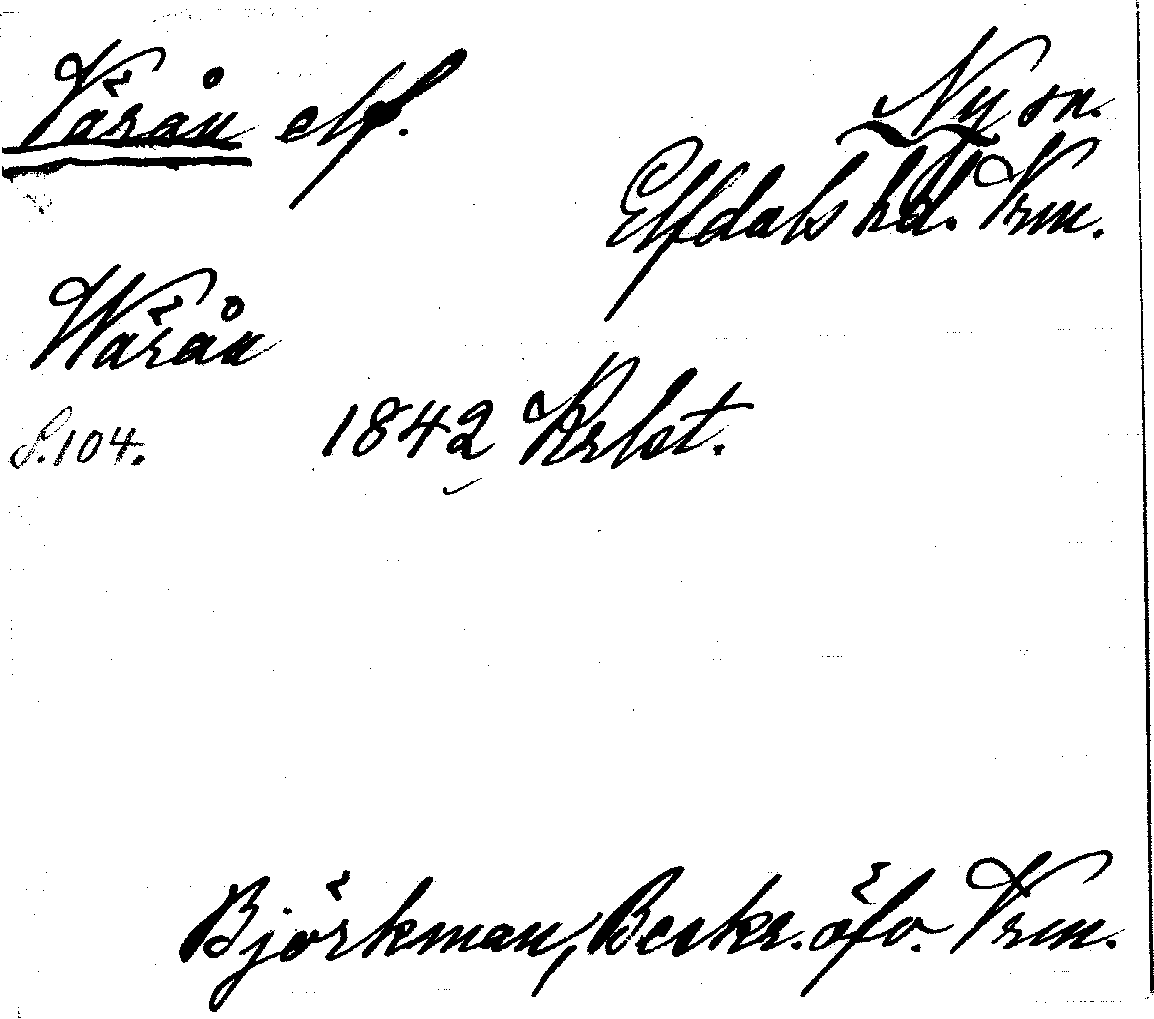 Värån elf.
Ny sn.
Elfdals hd. Vrm.
Wärån
S. 104. 1842 Krlst.
Björkman, Beskr. öfv. Vrm.